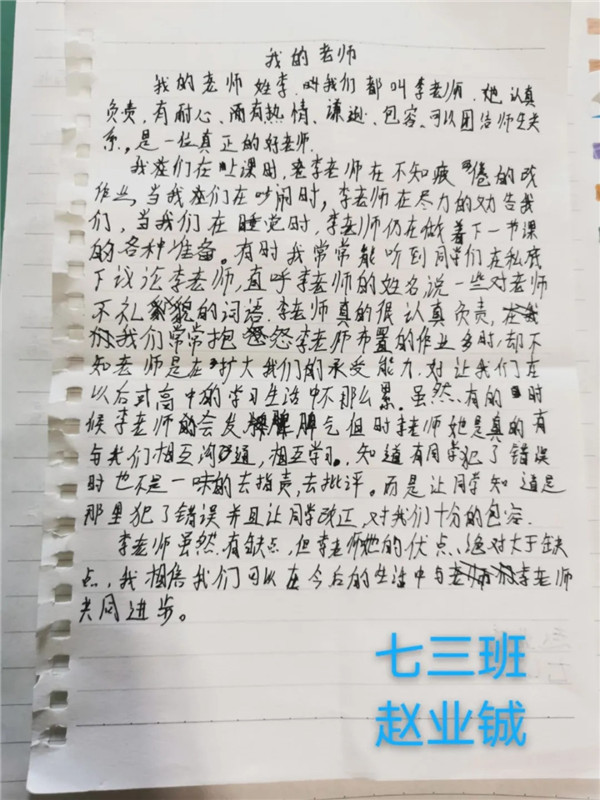 我的老师
我的老师姓李,叫我们都叫李老师,她认真
负责,有耐心、而有热情、谦逊、包容、可以团结师生关
系,是一位真正的好老师.
我们在上课时,李老师在不知疲倦的改
作业,当我们在吵闹时,李老师在尽力的劝告我
们,当我们在睡觉时,李老师仍在做着下一节课
的各种准备。有时我常常能听到同学们在私底
下议论李老师,直呼李老师的姓名说一些对老师
不礼貌的词语.李老师真的很认真负责,
我们常常抱怨李老师布置的作业多时,却不
知老师是在扩大我们的承受能力.对让我们在
以后式高中的学习生活中不那么累。虽然有的时
候李老师的会发脾气但时李老师她是真的有
与我们相互沟通,相互学习。知道有同学犯了错误
时也不是一味的去指责,去批评。而是让同学知道是
那里犯了错误并且让同学改正,对我们十分的包容.
李老师虽然有缺点,但李老师她的优点、绝对大于缺
点,我相信我们可以在今后的生活中与李老师
共同进步。
七三班
赵业铖